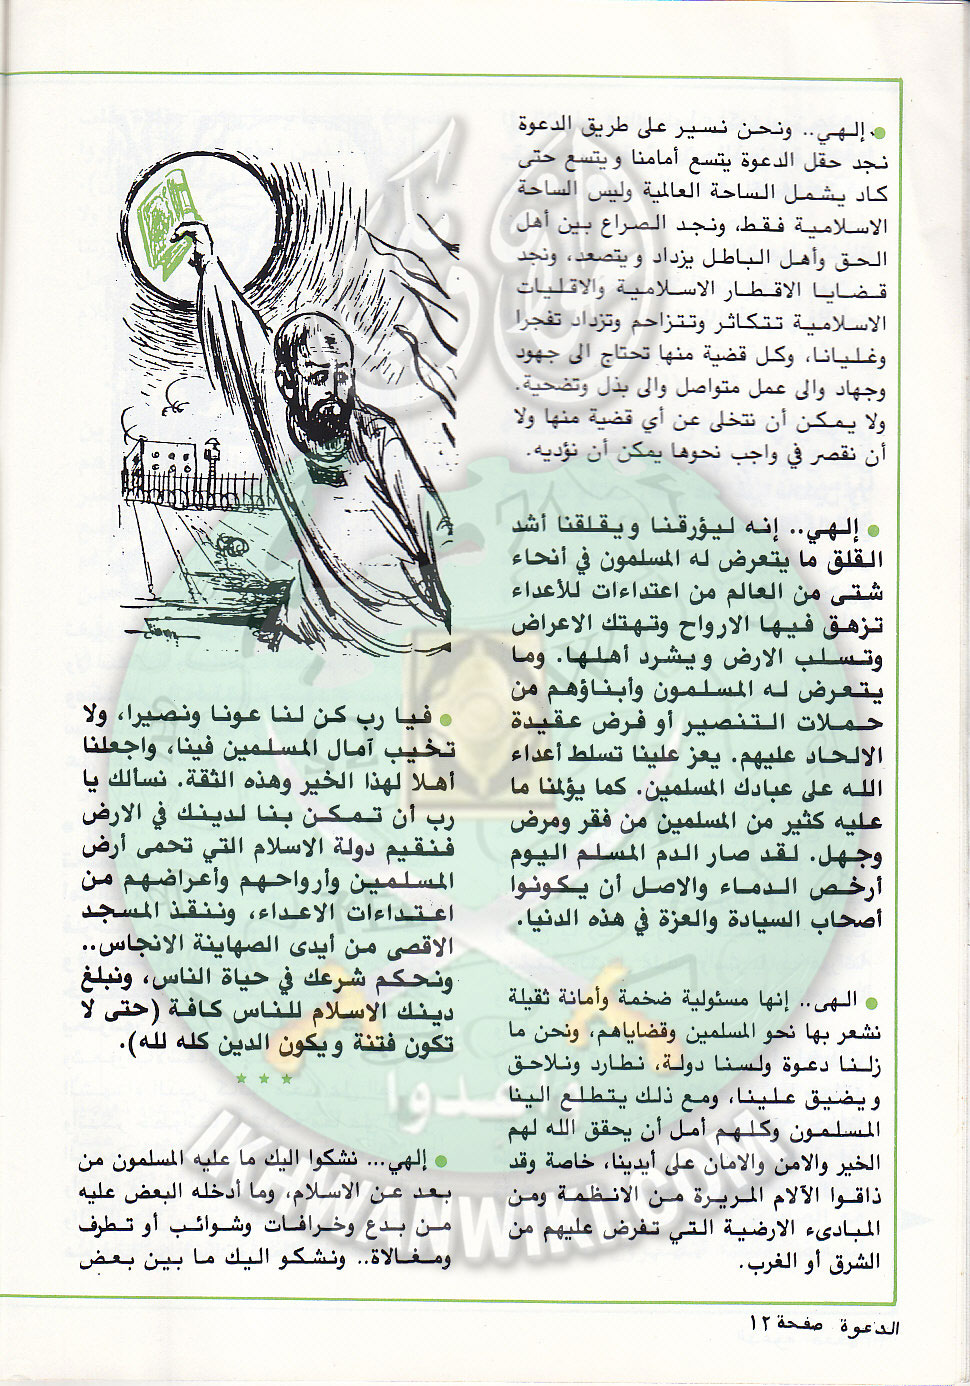 إلهي.. ونحن نسير على طريق الدعوة
نجد حقل الدعوة يتسع أمامنا ويتسع حتى
كاد يشمل الساحة العالمية وليس الساحة
الاسلامية فقط، ونجد الصراع بين أهل
الحق وأهل الباطل يزداد ويتصعد، ونجد
قضايا الاقطار الاسلامية والاقليات
الاسلامية تتكاثر وتتزاحم وتزداد تفجرا
وغليانا، وكل قضية منها تحتاج الى جهود
وجهاد والى عمل متواصل والى بذل وتضحية.
ولا يمكن أن نتخلى عن أي قضية منها ولا
أن نقصر في واجب نحوها يمكن أن نؤديه.
إلهي.. إنه ليؤرقنا ويقلقنا أشد
القلق ما يتعرض له المسلمون في أنحاء
شتى من العالم من اعتداءات للأعداء
تزهق فيها الارواح وتهتك الاعراض
وتسلب الارض ويشرد أهلها. وما
يتعرض له المسلمون وأبناؤهم من
حملات التنصير أو فرض عقيدة
الالحاد عليهم. يعز علينا تسلط أعداء
الله على عبادك المسلمين. كما يؤلمنا ما
عليه كثير من المسلمين من فقر ومرض
وجهل. لقد صار الدم المسلم اليوم
أرخص الدماء والاصل أن يكونوا
أصحاب السيادة والعزة في هذه الدنيا.
الهى.. إنها مسئولية ضخمة وأمانة ثقيلة
نشعر بها نحو المسلمين وقضاياهم، ونحن ما
زلنا دعوة ولسنا دولة، نطارد ونلاحق
ويضيق علينا، ومع ذلك يتطلع الينا
المسلمون وكلهم أمل أن يحقق الله لهم
الخير والامن والامان على أيدينا، خاصة وقد
ذاقوا الآلام المريرة من الانظمة ومن
المبادىء الارضية التي تفرض عليهم من
الشرق أو الغرب.
فيا رب كن لنا عونا ونصيرا، ولا
تخيب آمال المسلمين فينا، واجعلنا
أهلا لهذا الخير وهذه الثقة. نسألك يا
رب أن تمكن بنا لدينك في الارض
فنقيم دولة الاسلام التي تحمى أرض
المسلمين وأرواحهم وأعراضهم من
اعتداءات الاعداء، وننقذ المسجد
الاقصى من أيدى الصهاينة الانجاس..
ونحكم شرعك في حياة الناس، ونبلغ
دينك الاسلام للناس كافة (حتى لا
تكون فتنة ويكون الدين كله لله).
* * *
إلهي... نشكوا اليك ما عليه المسلمون من
بعد عن الاسلام، وما أدخله البعض عليه
من بدع وخرافات وشوائب أو تطرف
ومغالاة.. ونشكو اليك ما بين بعض
الدعوة صفحة ١٢
وأعدوا
IKHWANWIKI.COM